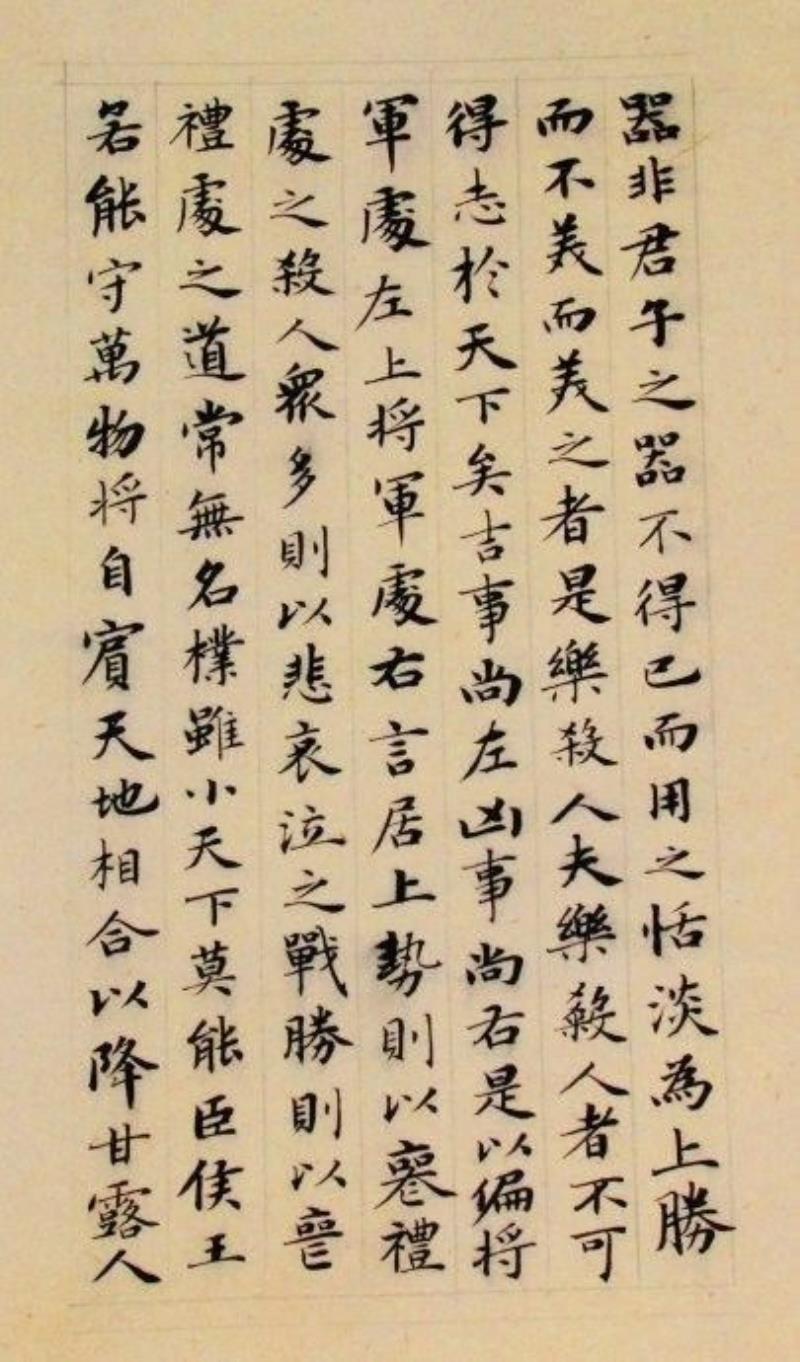 器非君子之器不得已而用之恬淡為上勝
而不美而美之者是樂殺人夫樂殺人者不可
得志於天下矣吉事尚左凶事尚右是以偏將
軍處左上將軍處右言居上勢則以喪禮
處之殺人眾多則以悲哀泣之戰勝則以喪
禮處之道常無名樸雖小天下莫能臣侯王
若能守萬物將自賓天地相合以降甘露人